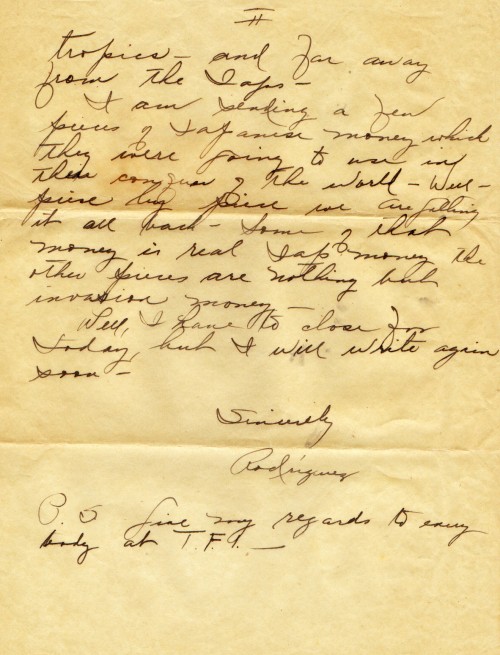 II
tropics - and far away
from the Japs -
I am sending a few
pieces of Japanese money which
they were going to use in
their conquer of the world - Well -
piece by piece we are getting
it all back - Some of that
money is real Jap money the
other pieces are nothing but
invasion money -
Well, I have to close for
today, but I will write again
soon -
Sincerely
Rodríguez
P.S Give my regards to every
body at T.F.I. -